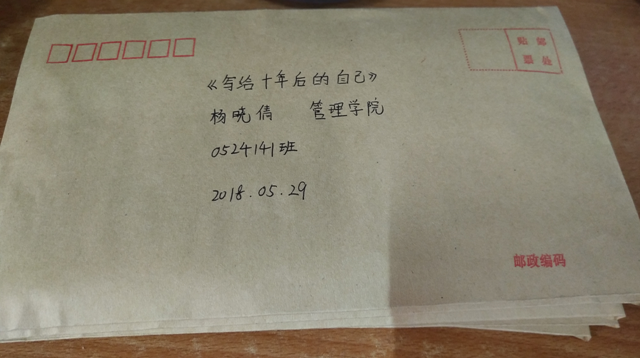 贴邮
票处
《写给十年后的自己》
杨晓倩 管理学院
0524141班
2018.05.29
邮政编码